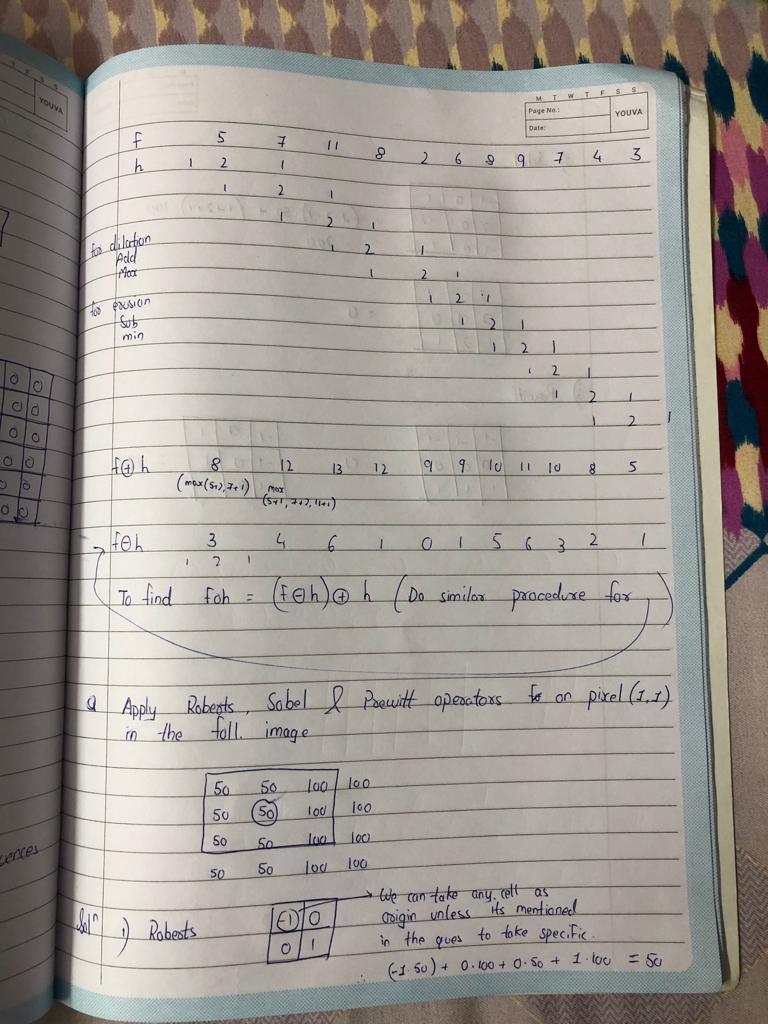 M T W T F S S
Page No.:
Date:
YOUVA
YOUVA
f 5 7 11 8 2 6 8 9 7 4 3
h 1 2 1
1 2 1
1 2 1
for dilation 1 2 1
Add
Max 1 2 1
for erosion 1 2 1
Sub 1 2 1
min 1 2 1
1 2 1
1 2 1
1 2 1
f⊕h 8 12 13 12 9 9 10 11 10 8 5
(max(5+2,7+1) max
(5+1, 7+2, 11+1)
f⊖h 3 4 6 1 0 1 5 6 3 2 1
1 2 1
To find foh = (f⊖h)⊕h (Do similar procedure for )
Q Apply Roberts, Sobel & Prewitt operators on pixel (1,1)
in the foll. image
50 50 100 100
50 50 100 100
50 50 100 100
50 50 100 100
Solⁿ 1) Roberts
-1 0
0 1
We can take any cell as
origin unless its mentioned
in the ques to take specific.
∴ (-1·50) + 0·100 + 0·50 + 1·100 = 50
0 0
0 0
0 0
0 0
0 0
0 0
uences